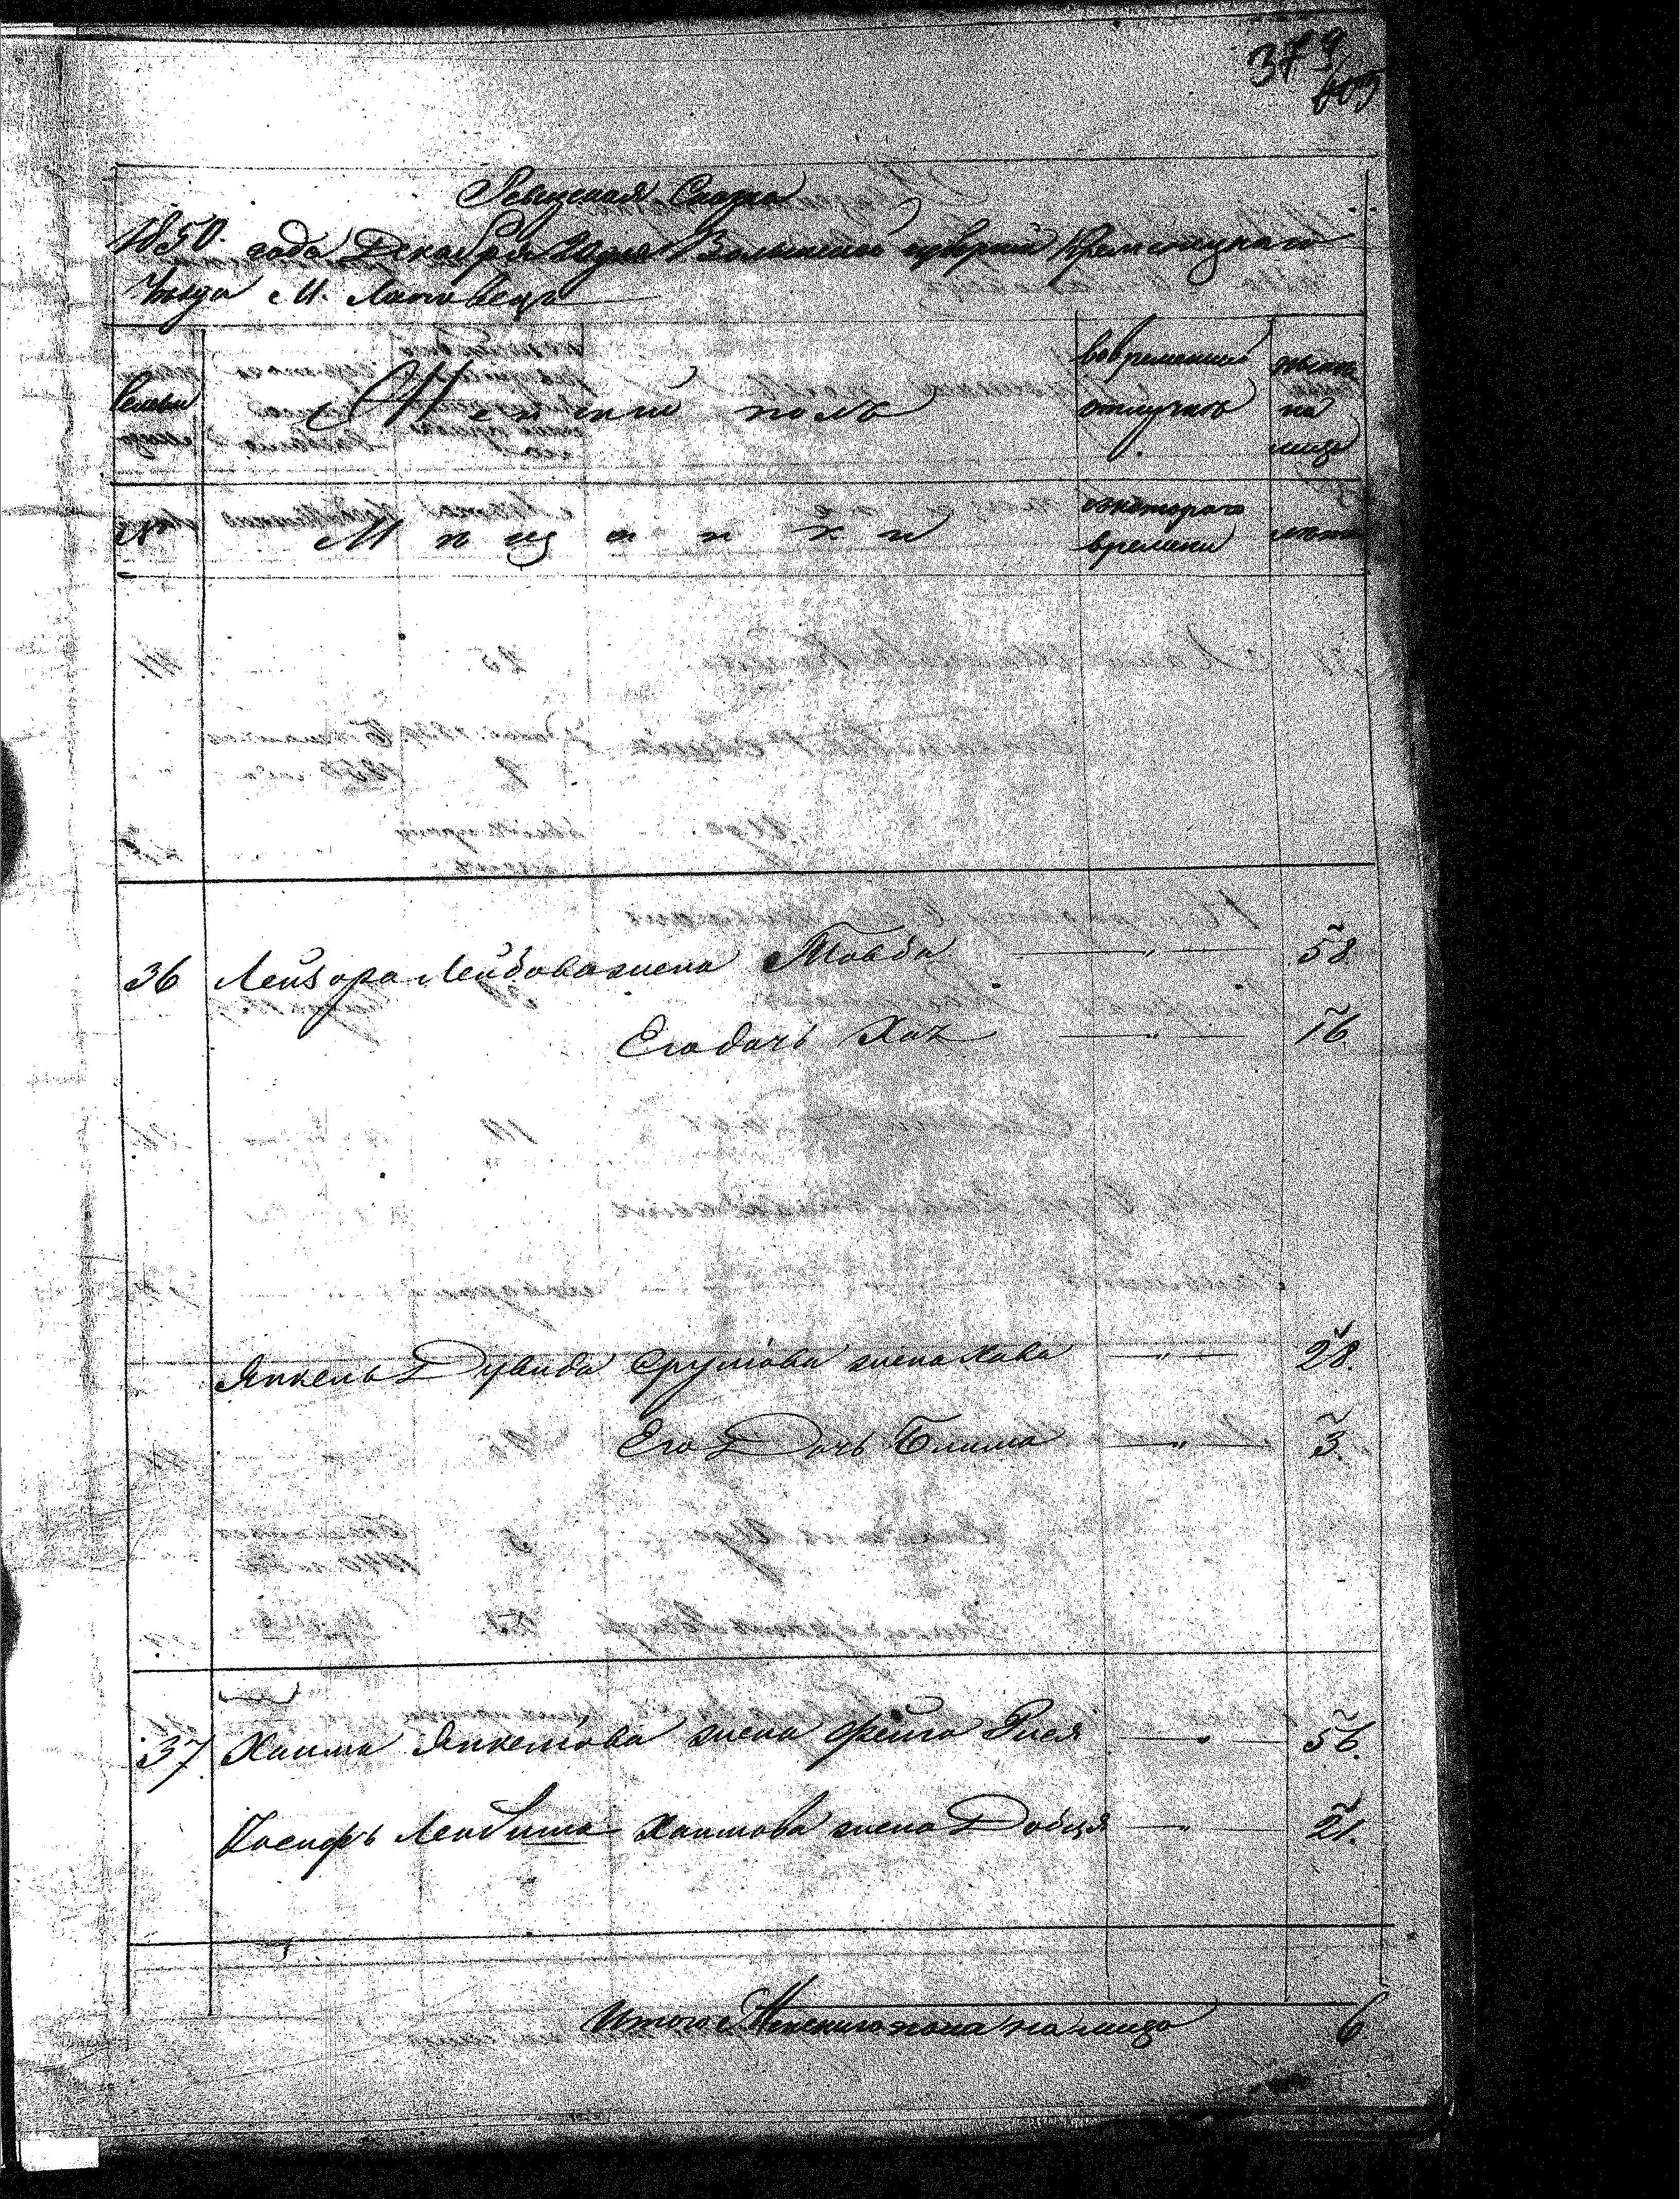 379
609
Ревизская Сказка
1850. года Декабря 20 дня Волынской губернии Кременецкаго
Уезда М. Лановец
Семьи
Женский полъ
во временной
отлучке
ныне
на
лицо
№
Мещанки
с котораго
времени
лета
36 Лейзора Лейбова жена Товба — " — 58.
Его дочь Хая — " — 16.
Янкель Дувида Срулiова жена Хава — " — 28.
Его Дочь Блима — " — 3.
37 Хаима Янкелiова жена Фейга Рися — " — 56.
Иосифъ Лейбиша Хаимова жена Добця — " — 21.
Итого Женскаго пола на лицо 6